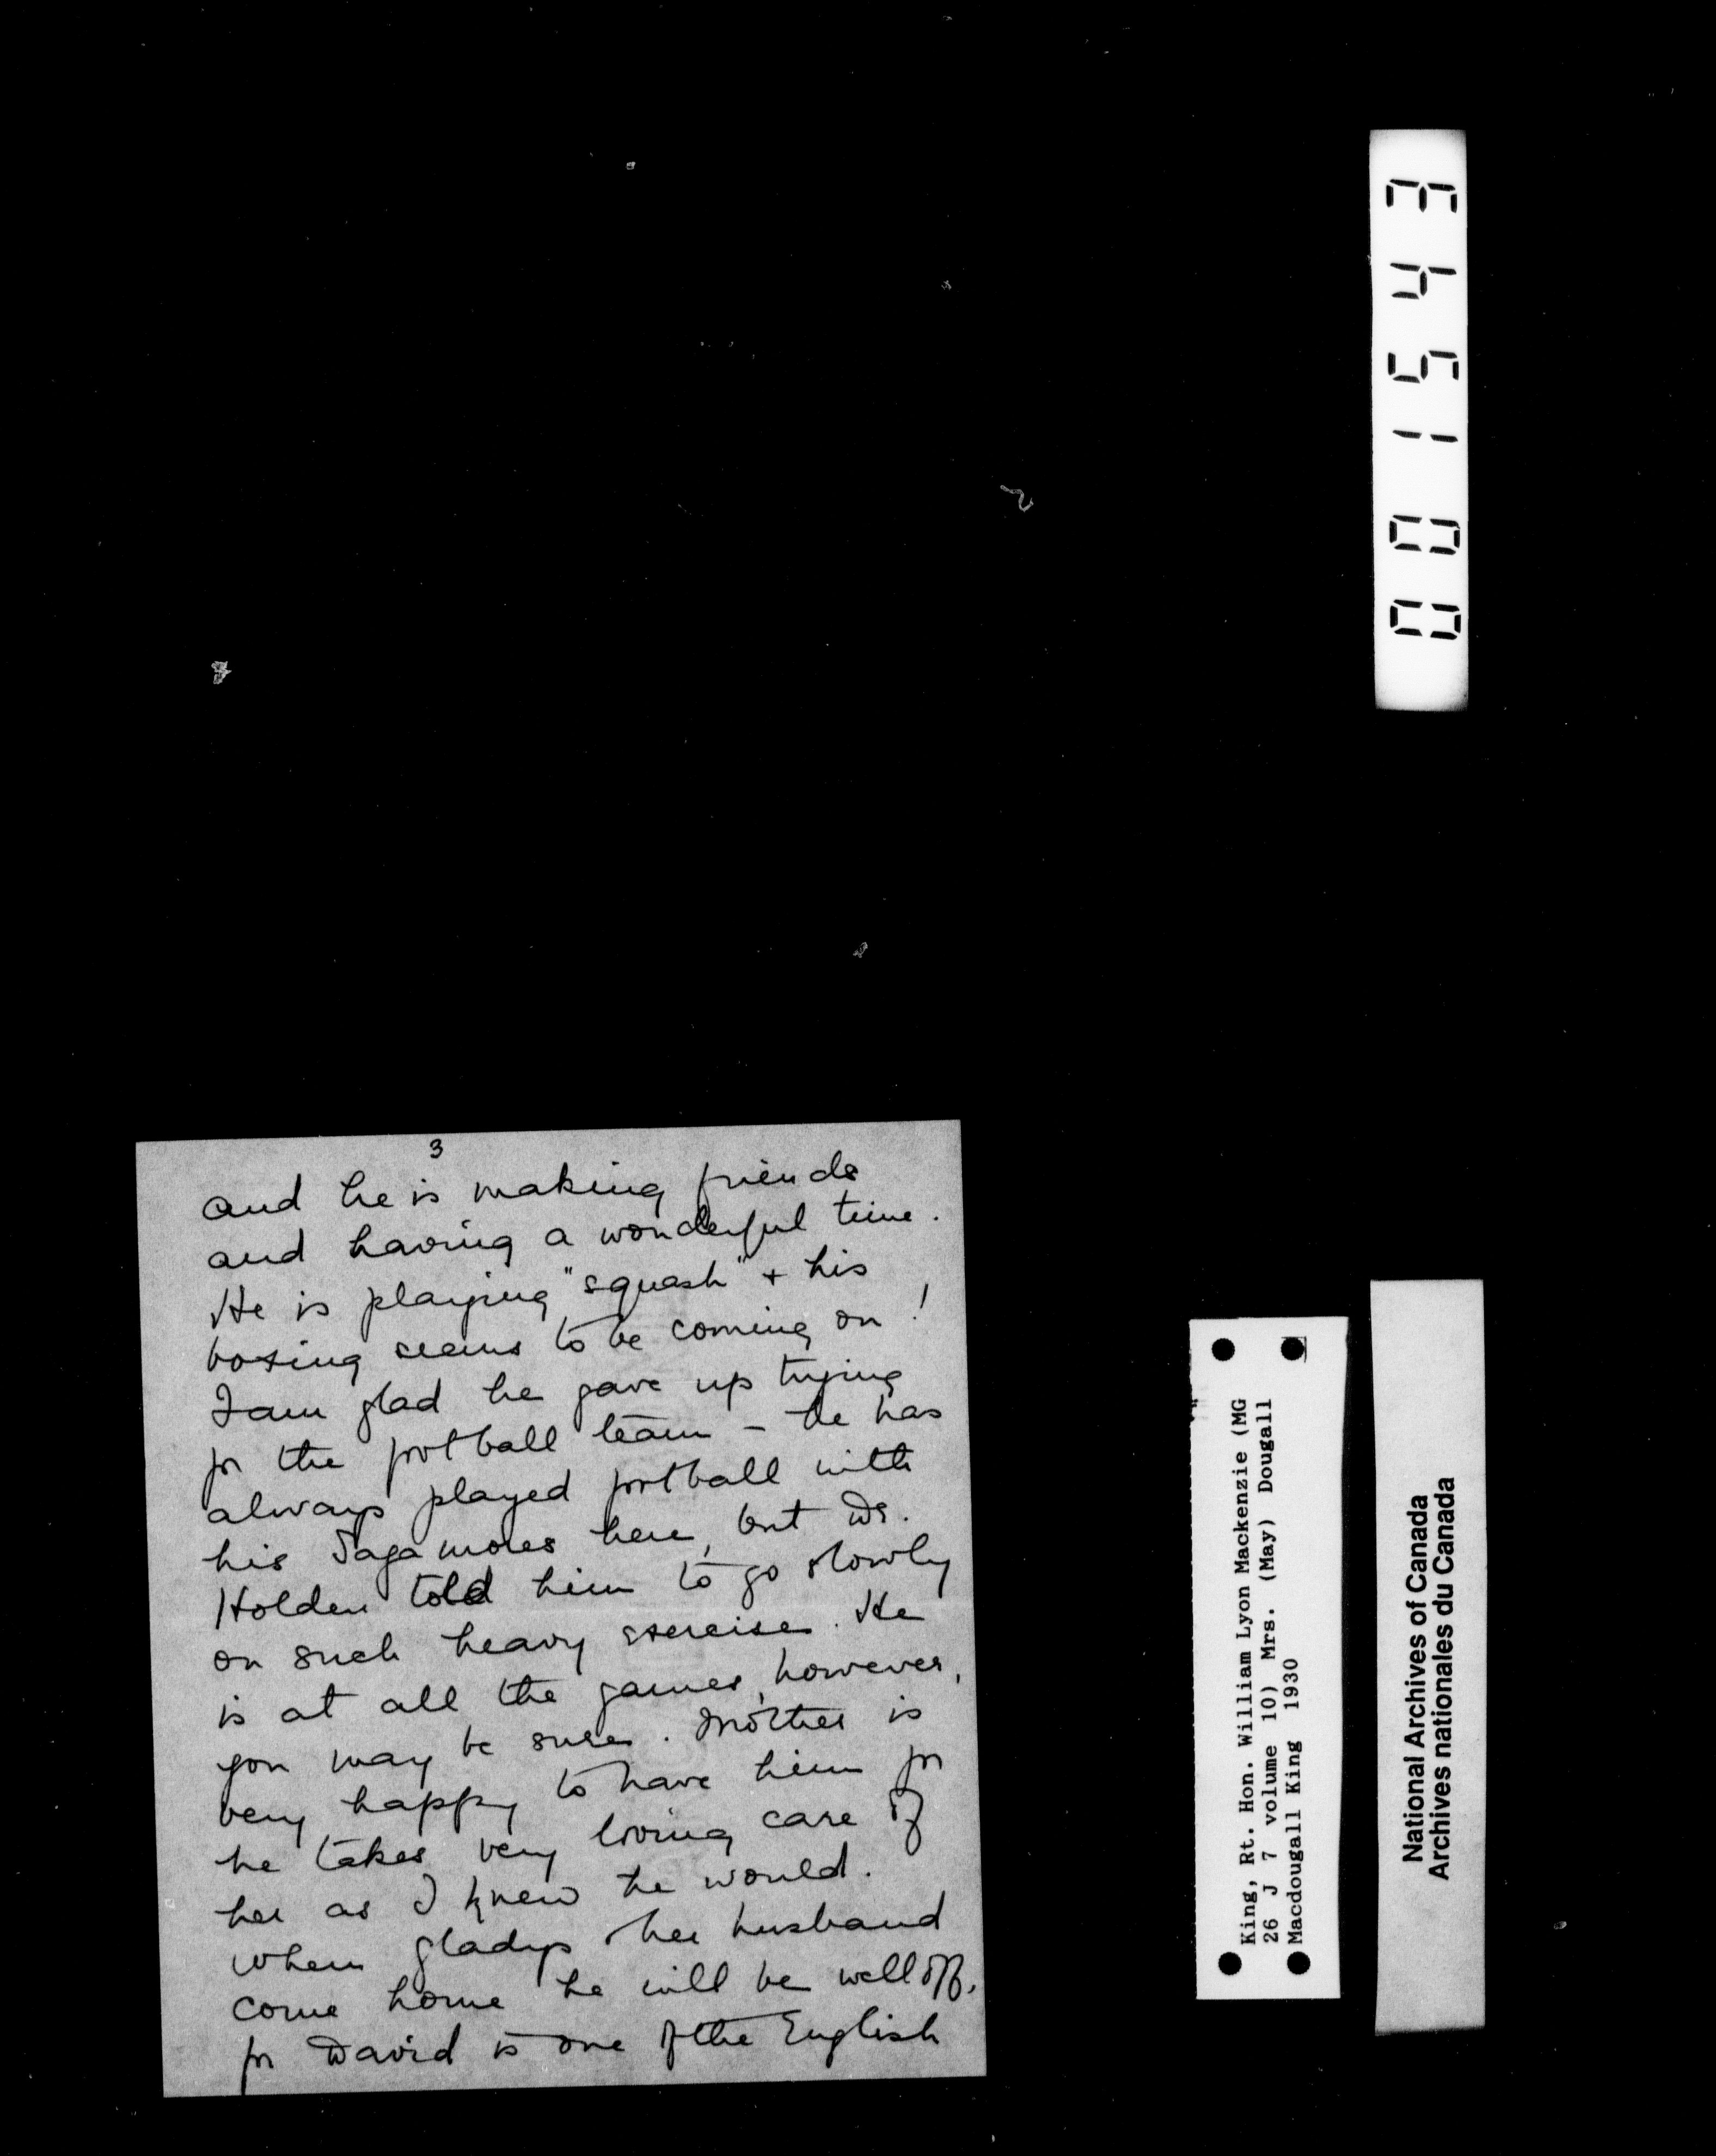 3
and he is making friends
and having a wonderful time.
He is playing "squash" + his
boxing seems to be coming on!
I am glad he gave up trying
for the football team - he has
always played football with
his Sagamores here, but Dr.
Holden told him to go slowly
on such heavy exercise. He
is at all the games, however,
you may be sure. Mother is
very happy to have him for
he takes very loving care of
her as I knew he would.
When Gladys + her husband
come home he will be well off,
for David is one of the English
001543
King, Rt. Hon. William Lyon Mackenzie (MG
26 J 7 volume 10) Mrs. (May) Dougall
Macdougall King 1930
National Archives of Canada
Archives nationales du Canada